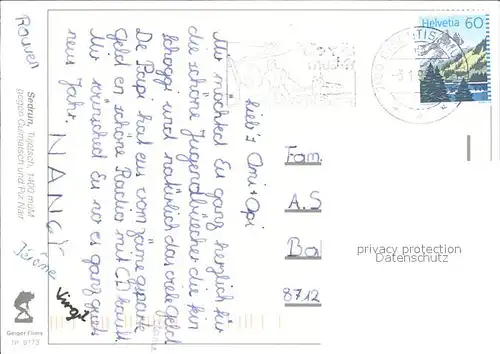 Helvetia 60
liebi's Omi + Opi
Mir möchted Eu ganz herzlich für
die schöne Jugendbüecher die fin
schoggi und natürlich das viele Geld
De Papi hat eus vom zämegsparte
Geld en schöne Radio mit CD kauft.
Mir wünsched Eu no es ganz guets
neus Jahr.
NANCY
Rouven
Jérôme
Virgil
Fam.
A.S
Bal
8712
privacy protection
Datenschutz
Sedrun, Tujetsch, 1400 müM
gegen Culmatsch und Piz Nair
Geiger Films